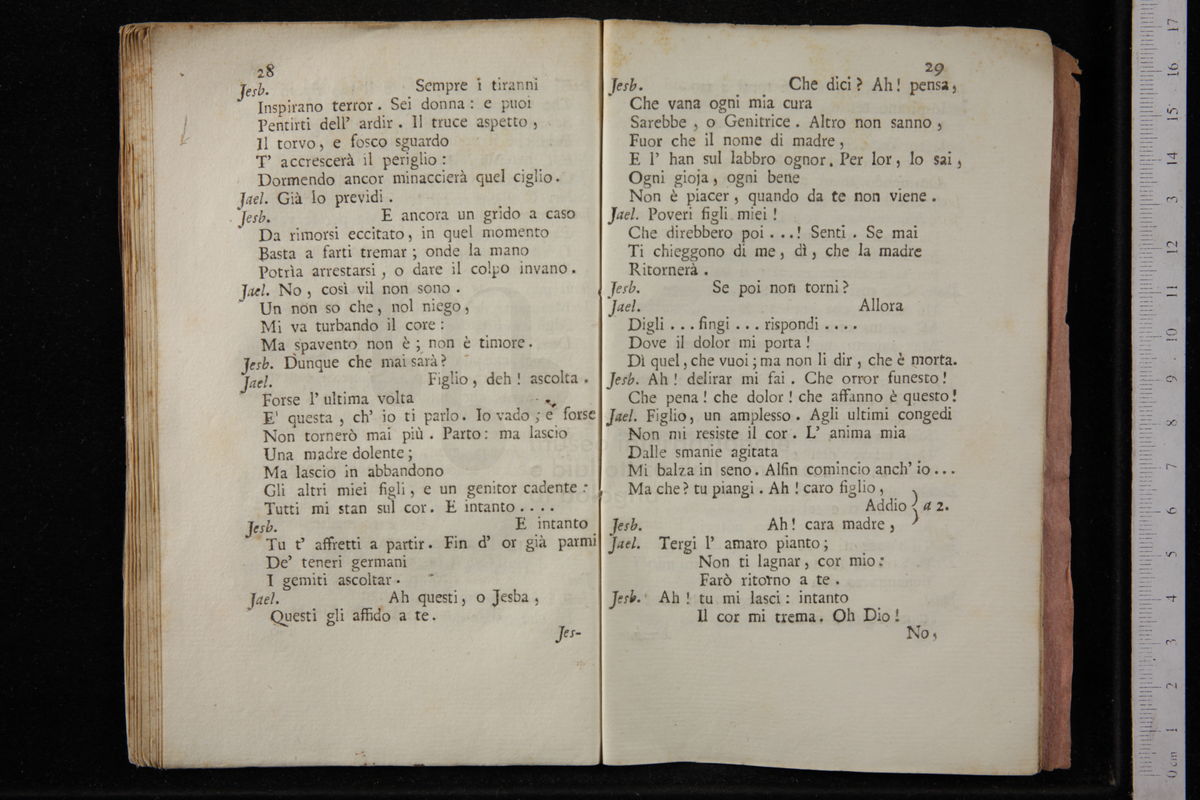 28
Jesb. Sempre i tiranni
Inspirano terror. Sei donna: e puoi
Pentirti dell' ardir. Il truce aspetto,
Il torvo, e fosco sguardo
T' accrescerà il periglio:
Dormendo ancor minaccierà quel ciglio.
Jael. Già lo previdi.
Jesb. E ancora un grido a caso
Da rimorsi eccitato, in quel momento
Basta a farti tremar; onde la mano
Potrìa arrestarsi, o dare il colpo invano.
Jael. No, così vil non sono.
Un non so che, nol niego,
Mi va turbando il core:
Ma spavento non è; non è timore.
Jesb. Dunque che mai sarà?
Jael. Figlio, deh! ascolta.
Forse l' ultima volta
E' questa, ch' io ti parlo. Io vado; e forse
Non tornerò mai più. Parto: ma lascio
Una madre dolente;
Ma lascio in abbandono
Gli altri miei figli, e un genitor cadente:
Tutti mi stan sul cor. E intanto....
Jesb. E intanto
Tu t' affretti a partir. Fin d' or già parmi
De' teneri germani
I gemiti ascoltar.
Jael. Ah questi, o Jesba,
Questi gli affido a te.
Jes-
29
Jesb. Che dici? Ah! pensa,
Che vana ogni mia cura
Sarebbe, o Genitrice. Altro non sanno,
Fuor che il nome di madre,
E l' han sul labbro ognor. Per lor, lo sai,
Ogni gioja, ogni bene
Non è piacer, quando da te non viene.
Jael. Poveri figli miei!
Che direbbero poi...! Senti. Se mai
Ti chieggono di me, dì, che la madre
Ritornerà.
Jesb. Se poi non torni?
Jael. Allora
Digli... fingi... rispondi....
Dove il dolor mi porta!
Dì quel, che vuoi; ma non li dir, che è morta.
Jesb. Ah! delirar mi fai. Che orror funesto!
Che pena! che dolor! che affanno è questo!
Jael. Figlio, un amplesso. Agli ultimi congedi
Non mi resiste il cor. L' anima mia
Dalle smanie agitata
Mi balza in seno. Alfin comincio anch' io...
Ma che? tu piangi. Ah! caro figlio,
Addio } a 2.
Jesb. Ah! cara madre,
Jael. Tergi l' amaro pianto;
Non ti lagnar, cor mio:
Farò ritorno a te.
Jesb. Ah! tu mi lasci: intanto
Il cor mi trema. Oh Dio!
No,
17
16
15
14
13
12
11
10
9
8
7
6
5
4
3
2
1
0 cm